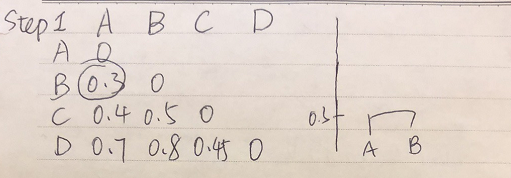 Step 1 A B C D
A 0
B 0.3 0
C 0.4 0.5 0
D 0.7 0.8 0.45 0
0.3
A B